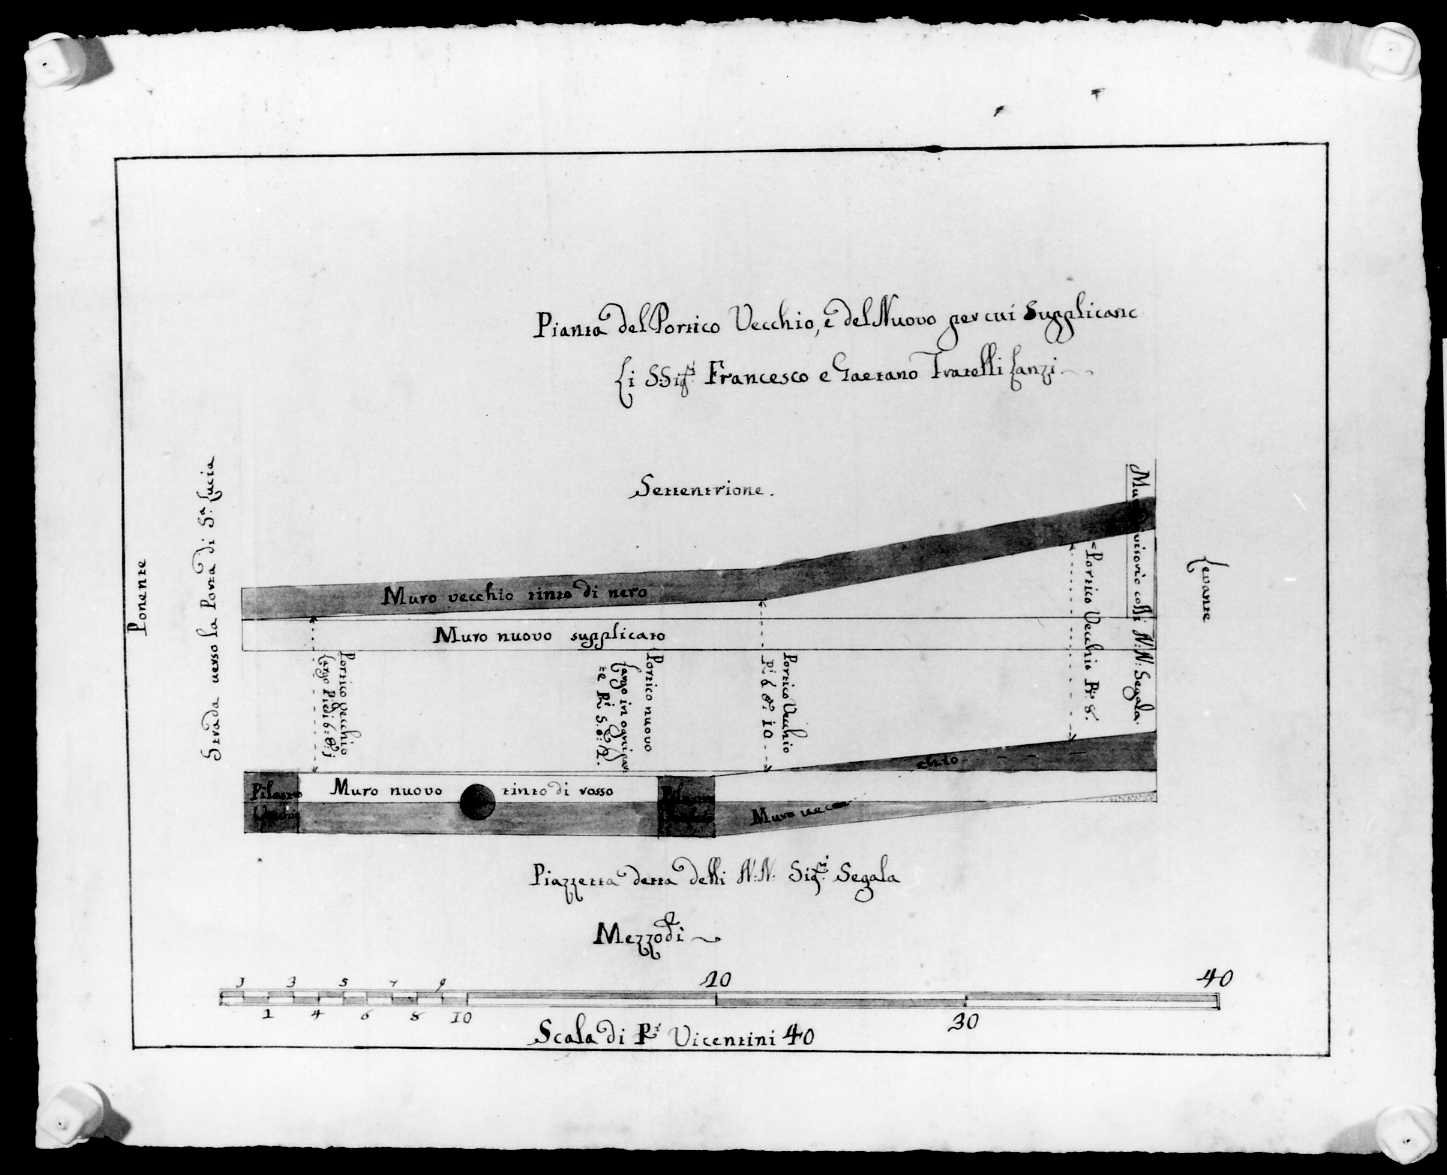 Pianta del Portico Vecchio, e del Nuovo per cui Supplicano
Li SSig.ri Francesco e Gaetano Fratelli Lanzi
Settentrione.
Ponente
Strada verso la Porta di S.ta Lucia
Levante
Muro divisorio colli N:N: Segala.
Muro vecchio tinto di nero
Muro nuovo supplicato
Portico Vecchio
largo Piedi 6:
Portico nuovo
largo in ogni par
te P.i 5. o: 1/2.
Portico Vecchio
P.i 6 o: 10
Portico Vecchio P.i 8.
Pilastro
Muro nuovo tinto di rosso
Pilastro
Muro vecchio
Piazzetta detta delli N:N: Sig.ri Segala
Mezzodì
1 3 5 7 9 20 40
2 4 6 8 10 30
Scala di P.i Vicentini 40